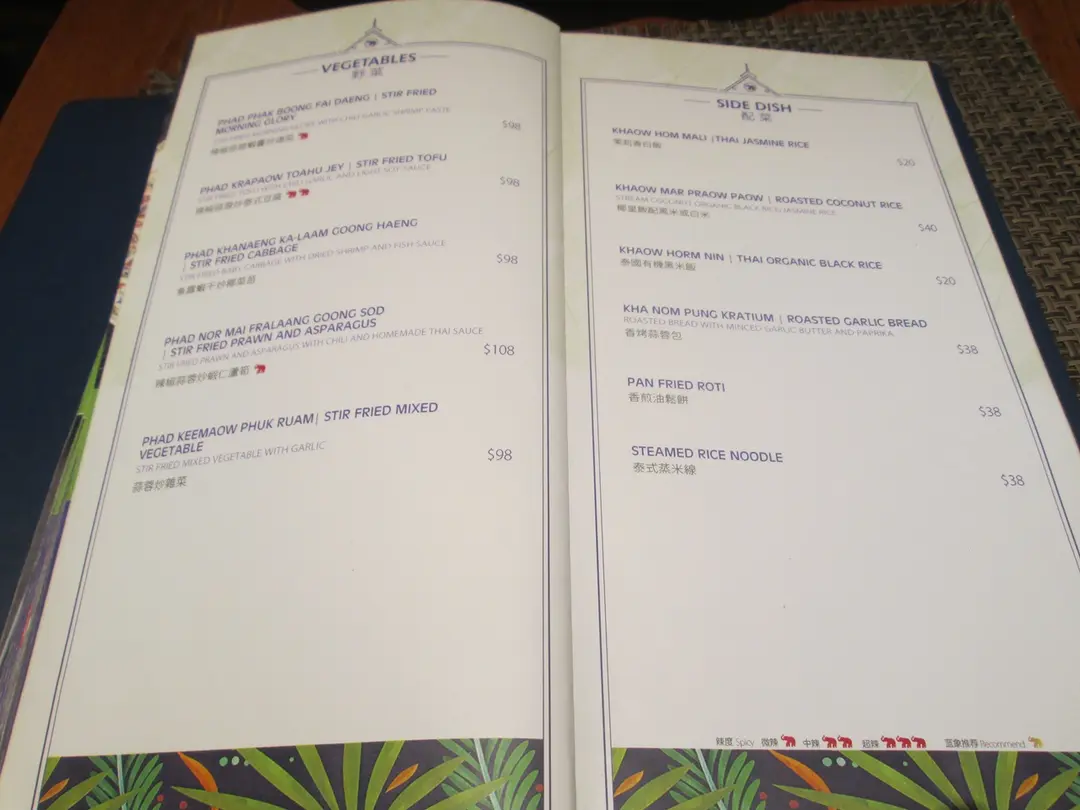 VEGETABLES
野菜
PHAD PHAK BOONG FAI DAENG | STIR FRIED
MORNING GLORY
STIR FRIED MORNING GLORY WITH CHILI GARLIC SHRIMP PASTE
$98
PHAD KRAPAOW TOAHU JEY | STIR FRIED TOFU
STIR FRIED TOFU WITH CHILI GARLIC AND LIGHT SOY SAUCE
辣椒蒜蓉炒泰式豆腐
$98
PHAD KHANAENG KA-LAAM GOONG HAENG
| STIR FRIED CABBAGE
STIR FRIED BABY CABBAGE WITH DRIED SHRIMP AND FISH SAUCE
魚露蝦干炒椰菜苗
$98
PHAD NOR MAI FRALAANG GOONG SOD
| STIR FRIED PRAWN AND ASPARAGUS
STIR FRIED PRAWN AND ASPARAGUS WITH CHILI AND HOMEMADE THAI SAUCE
辣椒蒜蓉炒蝦仁蘆筍
$108
PHAD KEEMAOW PHUK RUAM| STIR FRIED MIXED
VEGETABLE
STIR FRIED MIXED VEGETABLE WITH GARLIC
蒜蓉炒雜菜
$98
SIDE DISH
配菜
KHAOW HOM MALI |THAI JASMINE RICE
茉莉香白飯
$20
KHAOW MAR PRAOW PAOW | ROASTED COCONUT RICE
STREAM COCONUT ORGANIC BLACK RICE/ JASMINE RICE
椰皇飯配黑米或白米
$40
KHAOW HORM NIN | THAI ORGANIC BLACK RICE
泰國有機黑米飯
$20
KHA NOM PUNG KRATIUM | ROASTED GARLIC BREAD
ROASTED BREAD WITH MINCED GARLIC BUTTER AND PAPRIKA
香烤蒜蓉包
$38
PAN FRIED ROTI
香煎油鬆餅
$38
STEAMED RICE NOODLE
泰式蒸米線
$38
辣度 Spicy 微辣 中辣 超辣 藍象推荐 Recommend